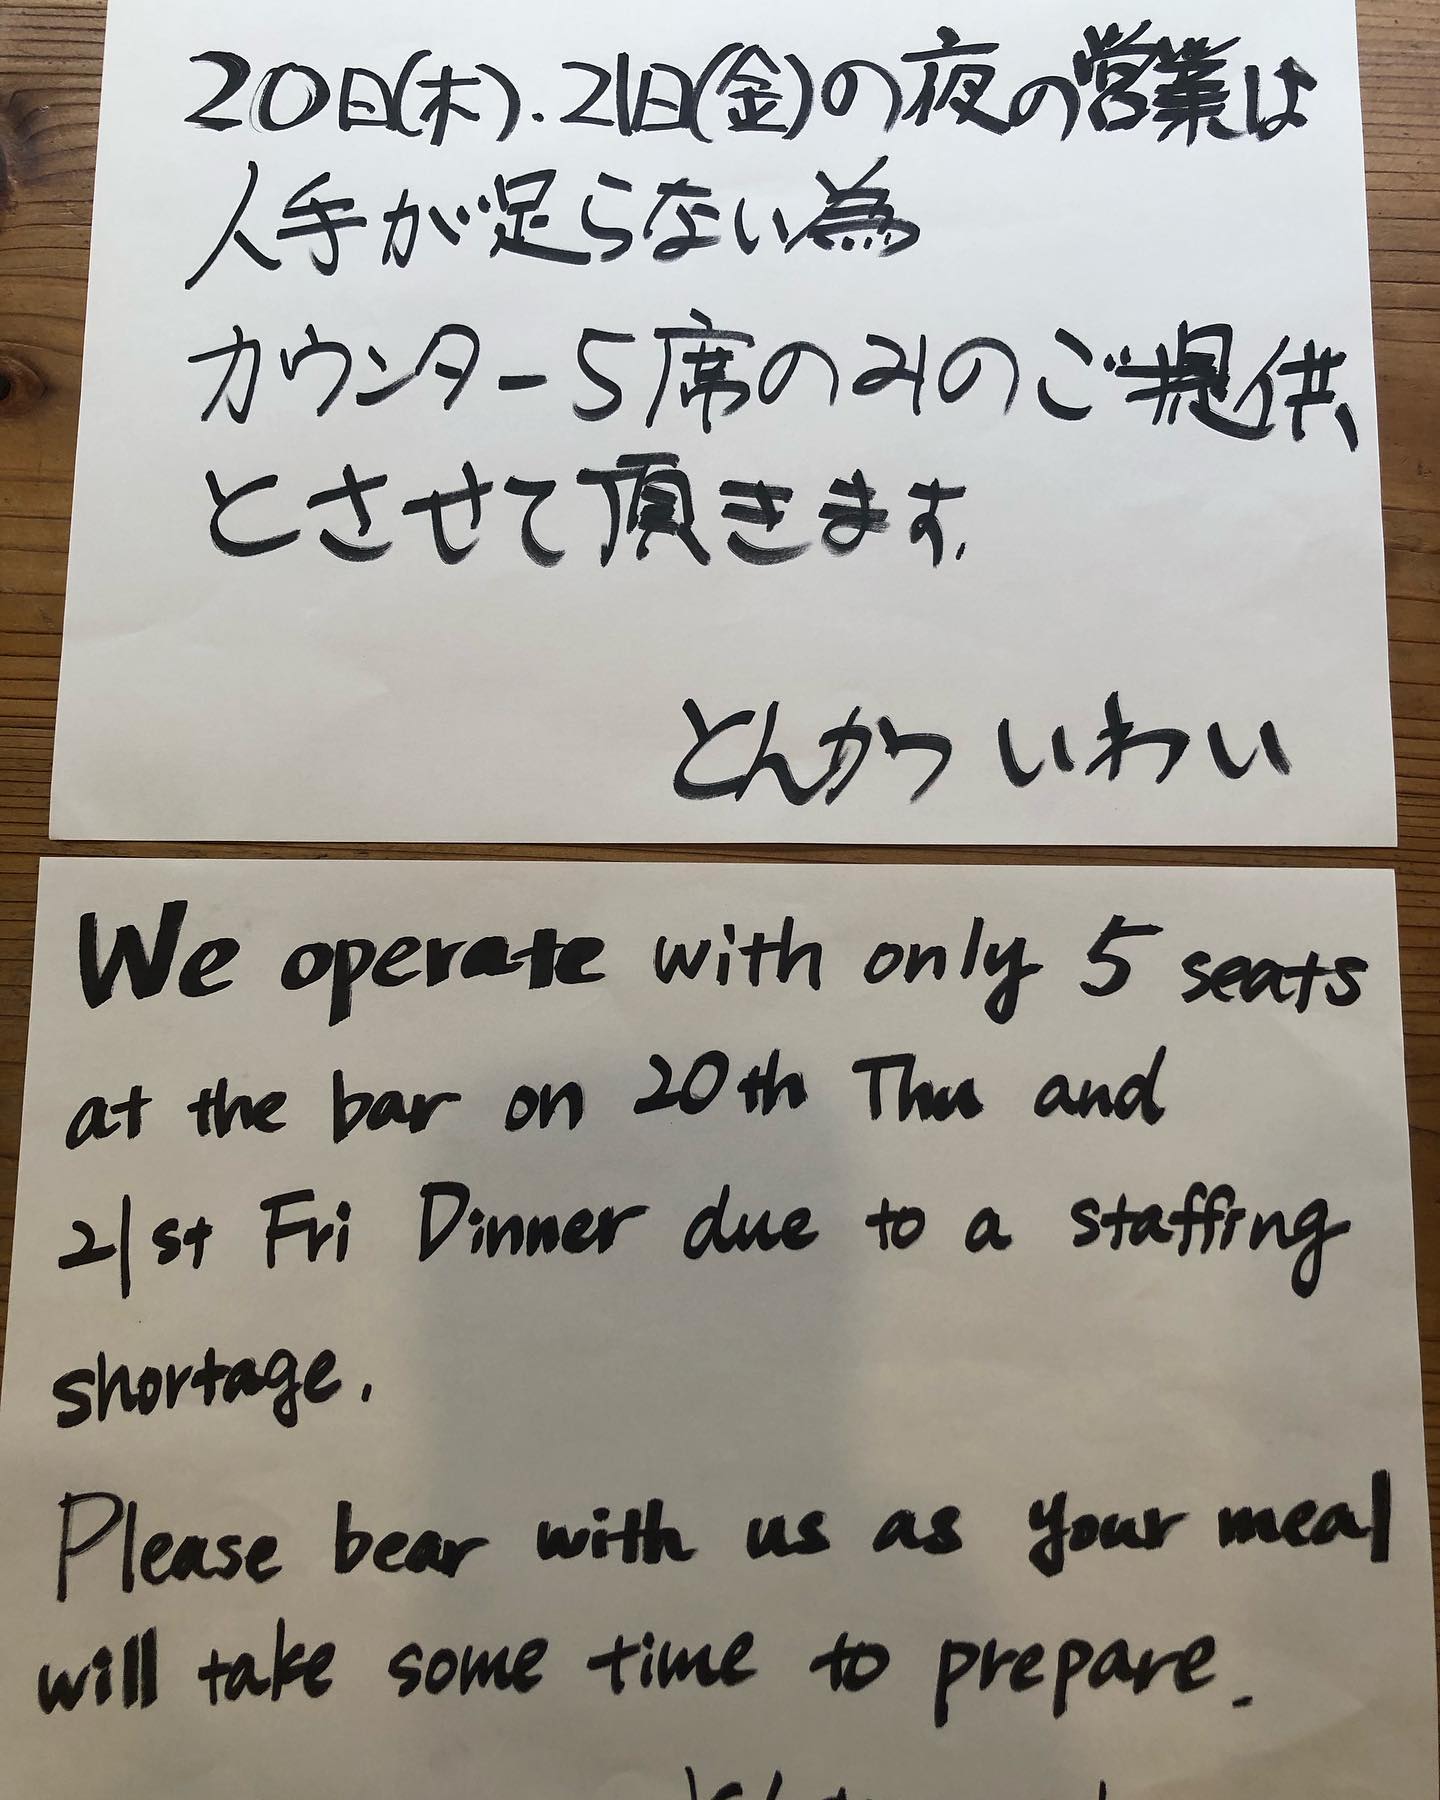 20日(木).21日(金)の夜の営業は
人手が足らない為
カウンター5席のみのご提供
とさせて頂きます.
とんかつ いわい
We operate with only 5 seats
at the bar on 20th Thu and
21st Fri Dinner due to a staffing
shortage.
Please bear with us as your meal
will take some time to prepare.